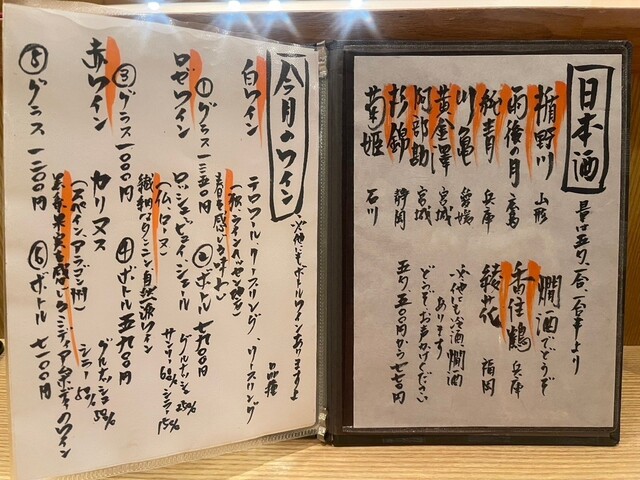 日本酒
量は五勺、一合、二合半より
楯野川 山形
雨後の月 広島
純青 兵庫
川亀 愛媛
黄金澤 宮城
阿部勘 宮城
杉錦 静岡
菊姫 石川
燗酒でどうぞ
香住鶴 兵庫
綾花 福岡
※他にも冷酒、燗酒
あります
どうぞお声がけください
五勺、五〇〇円から七七〇円
今月のワイン
※他にもボトルワインありますよ
白ワイン
テロワール、リースリング リースリング
品種
春を感じる味わい
①グラス 一三五〇円 ②ボトル 七九〇〇円
ロゼワイン
ロッシュ、ビュイシエール
グルナッシュ 25%
サンソー 60% シラー 15%
繊細なタンニン 自然派ワイン
③グラス 一〇〇〇円 ④ボトル 五九〇〇円
赤ワイン
カリヌス
グルナッシュ 50%
シラー 50%
(スペイン アラゴン州)
果実を感じるミディアムボディのワイン
⑤グラス 一二〇〇円 ⑥ボトル 七一〇〇円